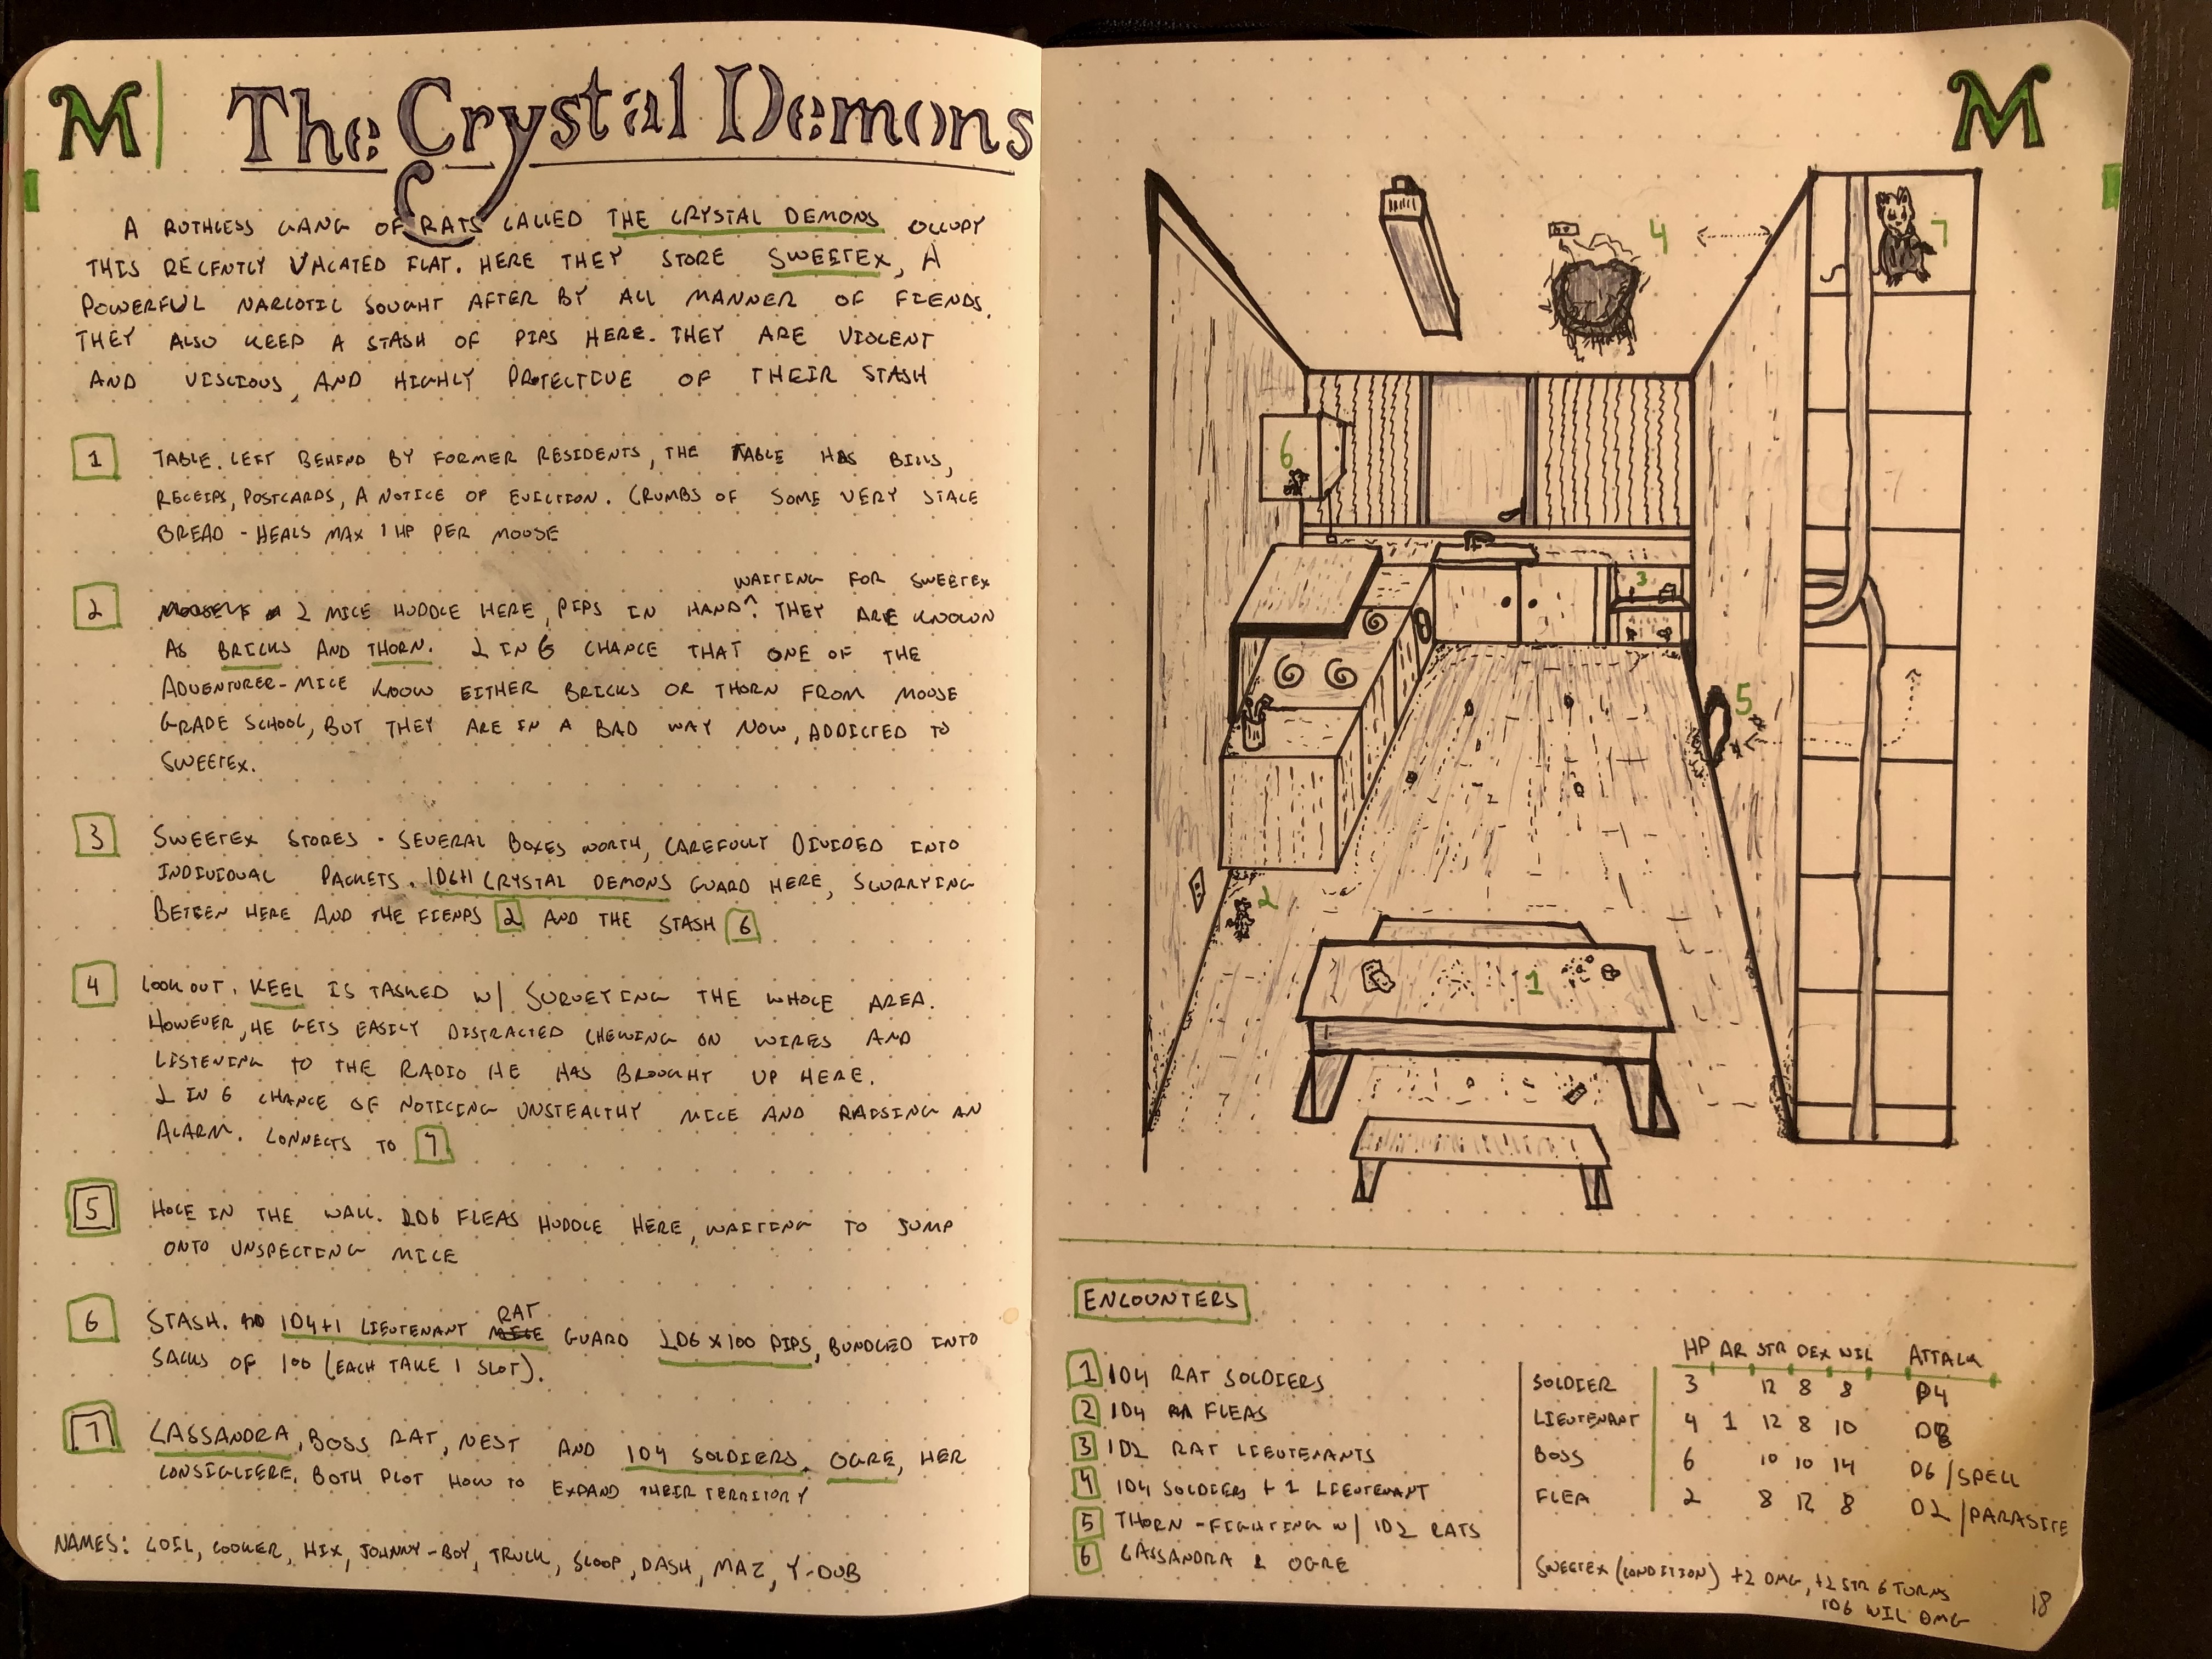 M
The Crystal Demons
A RUTHLESS GANG OF RATS CALLED THE CRYSTAL DEMONS OCCUPY
THIS RECENTLY VACATED FLAT. HERE THEY STORE SWEETEX, A
POWERFUL NARCOTIC SOUGHT AFTER BY ALL MANNER OF FIENDS.
THEY ALSO KEEP A STASH OF PIPS HERE. THEY ARE VIOLENT
AND VISCIOUS, AND HIGHLY PROTECTIVE OF THEIR STASH
1 TABLE. LEFT BEHIND BY FORMER RESIDENTS, THE TABLE HAS BILLS,
RECEIPS, POSTCARDS, A NOTICE OF EVICTION. CRUMBS OF SOME VERY STALE
BREAD - HEALS MAX 1 HP PER MOUSE
WAITING FOR SWEETEX
2 2 MICE HUDDLE HERE, PIPS IN HAND^. THEY ARE KNOWN
AS BRICKS AND THORN. 2 IN 6 CHANCE THAT ONE OF THE
ADVENTURER-MICE KNOW EITHER BRICKS OR THORN FROM MOUSE
GRADE SCHOOL, BUT THEY ARE IN A BAD WAY NOW, ADDICTED TO
SWEETEX.
3 SWEETEX STORES - SEVERAL BOXES WORTH, CAREFULLY DIVIDED INTO
INDIVIDUAL PACKETS. 1D6+1 CRYSTAL DEMONS GUARD HERE, SCURRYING
BETEEN HERE AND THE FIENDS 2 AND THE STASH 6
4 LOOK OUT. KEEL IS TASKED W/ SURVEYING THE WHOLE AREA.
HOWEVER, HE GETS EASILY DISTRACTED CHEWING ON WIRES AND
LISTENING TO THE RADIO HE HAS BROUGHT UP HERE.
2 IN 6 CHANCE OF NOTICING UNSTEALTHY MICE AND RAISING AN
ALARM. CONNECTS TO 7
5 HOLE IN THE WALL. 2D6 FLEAS HUDDLE HERE, WAITING TO JUMP
ONTO UNSPECTING MICE
RAT
6 STASH. 1D4+1 LIEUTENANT MICE GUARD 2D6 X 100 PIPS, BUNDLED INTO
SACKS OF 100 (EACH TAKE 1 SLOT).
7 CASSANDRA, BOSS RAT, NEST AND 1D4 SOLDIERS. OGRE, HER
CONSIGLIERE. BOTH PLOT HOW TO EXPAND THEIR TERRITORY
NAMES: COIL, COOKER, HIX, JOHNNY-BOY, TRUCK, SCOOP, DASH, MAZ, Y-DUB
M
4
7
6
3
5
2
1
ENCOUNTERS
1 1D4 RAT SOLDIERS
2 1D4 FLEAS
3 1D2 RAT LIEUTENANTS
4 1D4 SOLDIERS + 1 LIEUTENANT
5 THORN - FIGHTING W/ 1D2 RATS
6 CASSANDRA & OGRE
HP AR STR DEX WIL ATTACK
SOLDIER 3 12 8 8 D4
LIEUTENANT 4 1 12 8 10 D8
BOSS 6 10 10 14 D6/SPELL
FLEA 2 8 12 8 D2/PARASITE
SWEETEX (CONDITION) +2 DMG, +2 STR 6 TURNS
1D6 WIL DMG
18